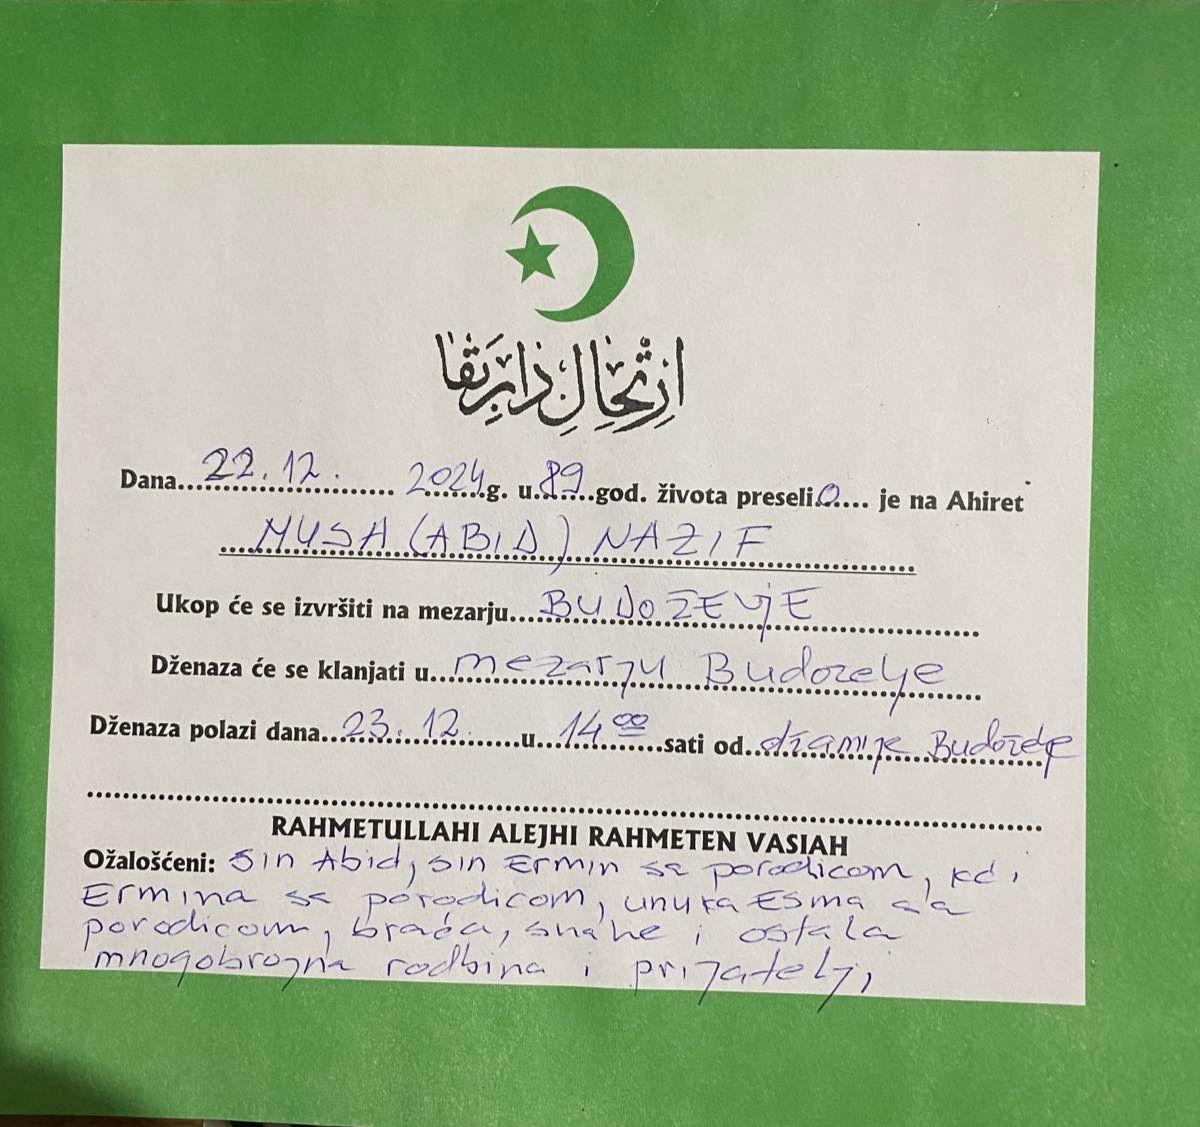 ارتحال دار بقا
Dana 22.12. 2024 g. u 89 god. života preselio je na Ahiret
MUSA (ABID) NAZIF
Ukop će se izvršiti na mezarju BUDOŽELJE
Dženaza će se klanjati u mezarju Budozelje
Dženaza polazi dana 23.12. u 14⁰⁰ sati od džamije Budoželje
RAHMETULLAHI ALEJHI RAHMETEN VASIAH
Ožalošćeni: sin Abid, sin Ermin sa porodicom, kći
Ermina sa porodicom, unuka Esma sa
porodicom, braća, snahe i ostala
mnogobrojna rodbina i prijatelji